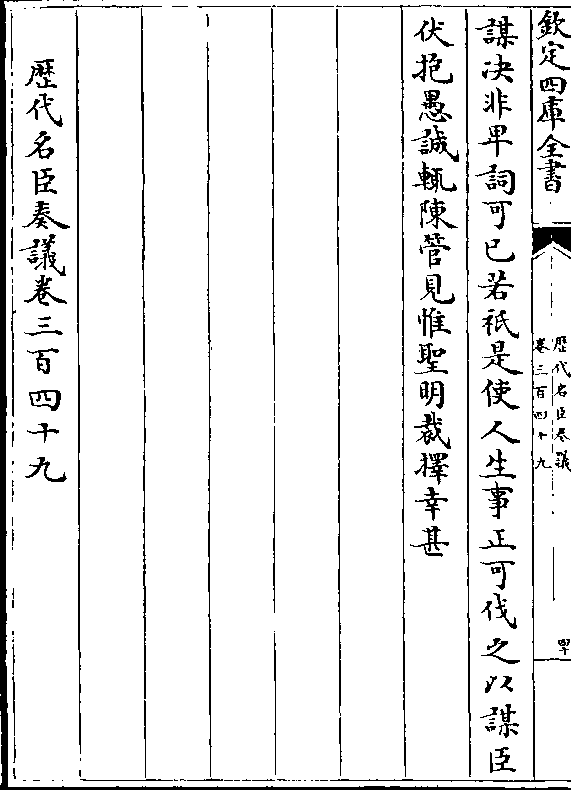 欽定四庫全書
歴代名臣奏議
卷三百四十九
謀决非卑詞可已若祇是使人生事正可伐之以謀臣
伏抱愚誠輒陳管見惟聖明裁擇幸甚
歴代名臣奏議卷三百四十九